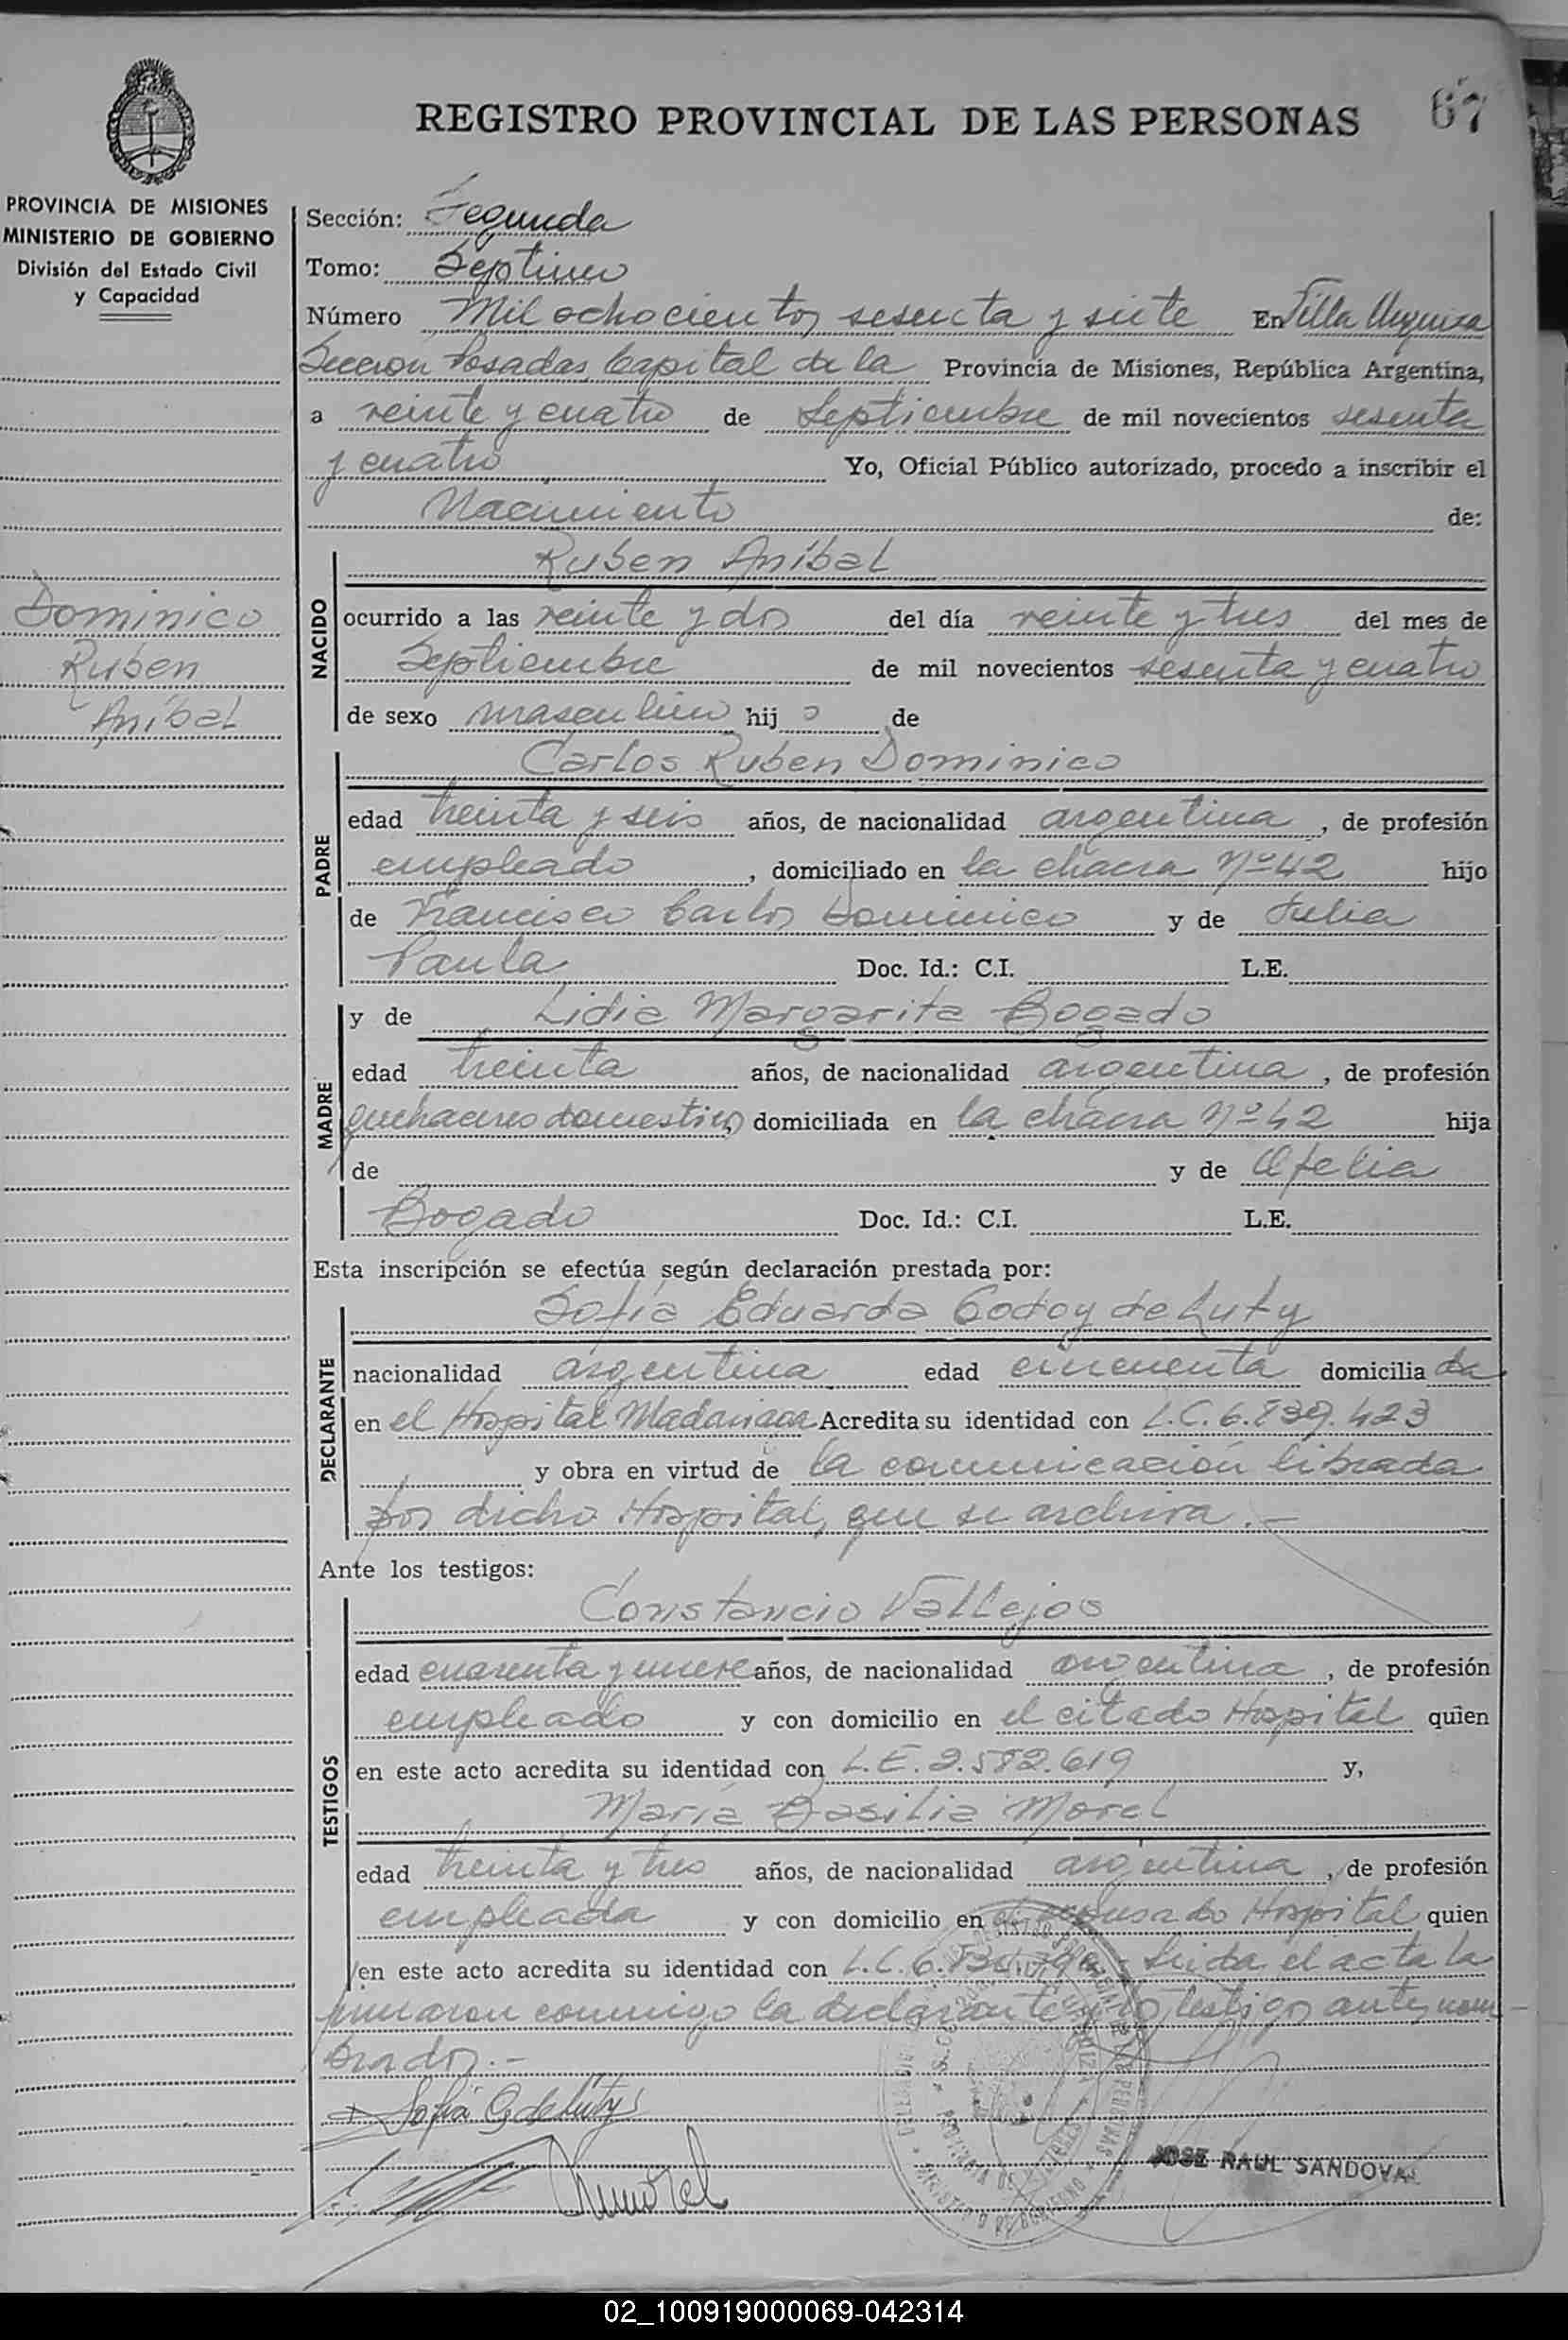 REGISTRO PROVINCIAL DE LAS PERSONAS 67
PROVINCIA DE MISIONES
MINISTERIO DE GOBIERNO
División del Estado Civil
y Capacidad
Dominico
Ruben
Aníbal
Sección: Segunda
Tomo: Septimo
Número Mil ochocientos sesenta y siete En Villa Urquiza
Seccion Posadas Capital de la Provincia de Misiones, República Argentina,
a veinte y cuatro de Septiembre de mil novecientos sesenta
y cuatro Yo, Oficial Público autorizado, procedo a inscribir el
Nacimiento de:
NACIDO
Ruben Aníbal
ocurrido a las veinte y dos del día veinte y tres del mes de
Septiembre de mil novecientos sesenta y cuatro
de sexo masculino hij o de
PADRE
Carlos Ruben Dominico
edad treinta y seis años, de nacionalidad argentina, de profesión
empleado, domiciliado en la chacra Nº 42 hijo
de Francisco Carlos Dominico y de Julia
Paula Doc. Id.: C.I. L.E.
MADRE
y de Lidia Margarita Bogado
edad treinta años, de nacionalidad argentina, de profesión
quehaceres domesticos domiciliada en la chacra Nº 42 hija
de y de Ofelia
Bogado Doc. Id.: C.I. L.E.
Esta inscripción se efectúa según declaración prestada por:
DECLARANTE
Sofía Eduarda Godoy de Luty
nacionalidad argentina edad cincuenta domicilia da
en el Hospital Madariaga Acredita su identidad con L.C. 6.839.423
y obra en virtud de la comunicación librada
por dicho Hospital, que se archiva.-
Ante los testigos:
TESTIGOS
Constancio Vallejos
edad cuarenta y nueve años, de nacionalidad argentina, de profesión
empleado y con domicilio en el citado Hospital quien
en este acto acredita su identidad con L.E. 2.582.619 y,
María Basilia Morel
edad treinta y tres años, de nacionalidad argentina, de profesión
empleada y con domicilio en el Hospital quien
en este acto acredita su identidad con L.C. 6. Leida el acta la
firmaron conmigo la declarante y los testigos antes nom-
brados.-
Sofia G de Luty
JOSE RAUL SANDOVAL
02_100919000069-042314